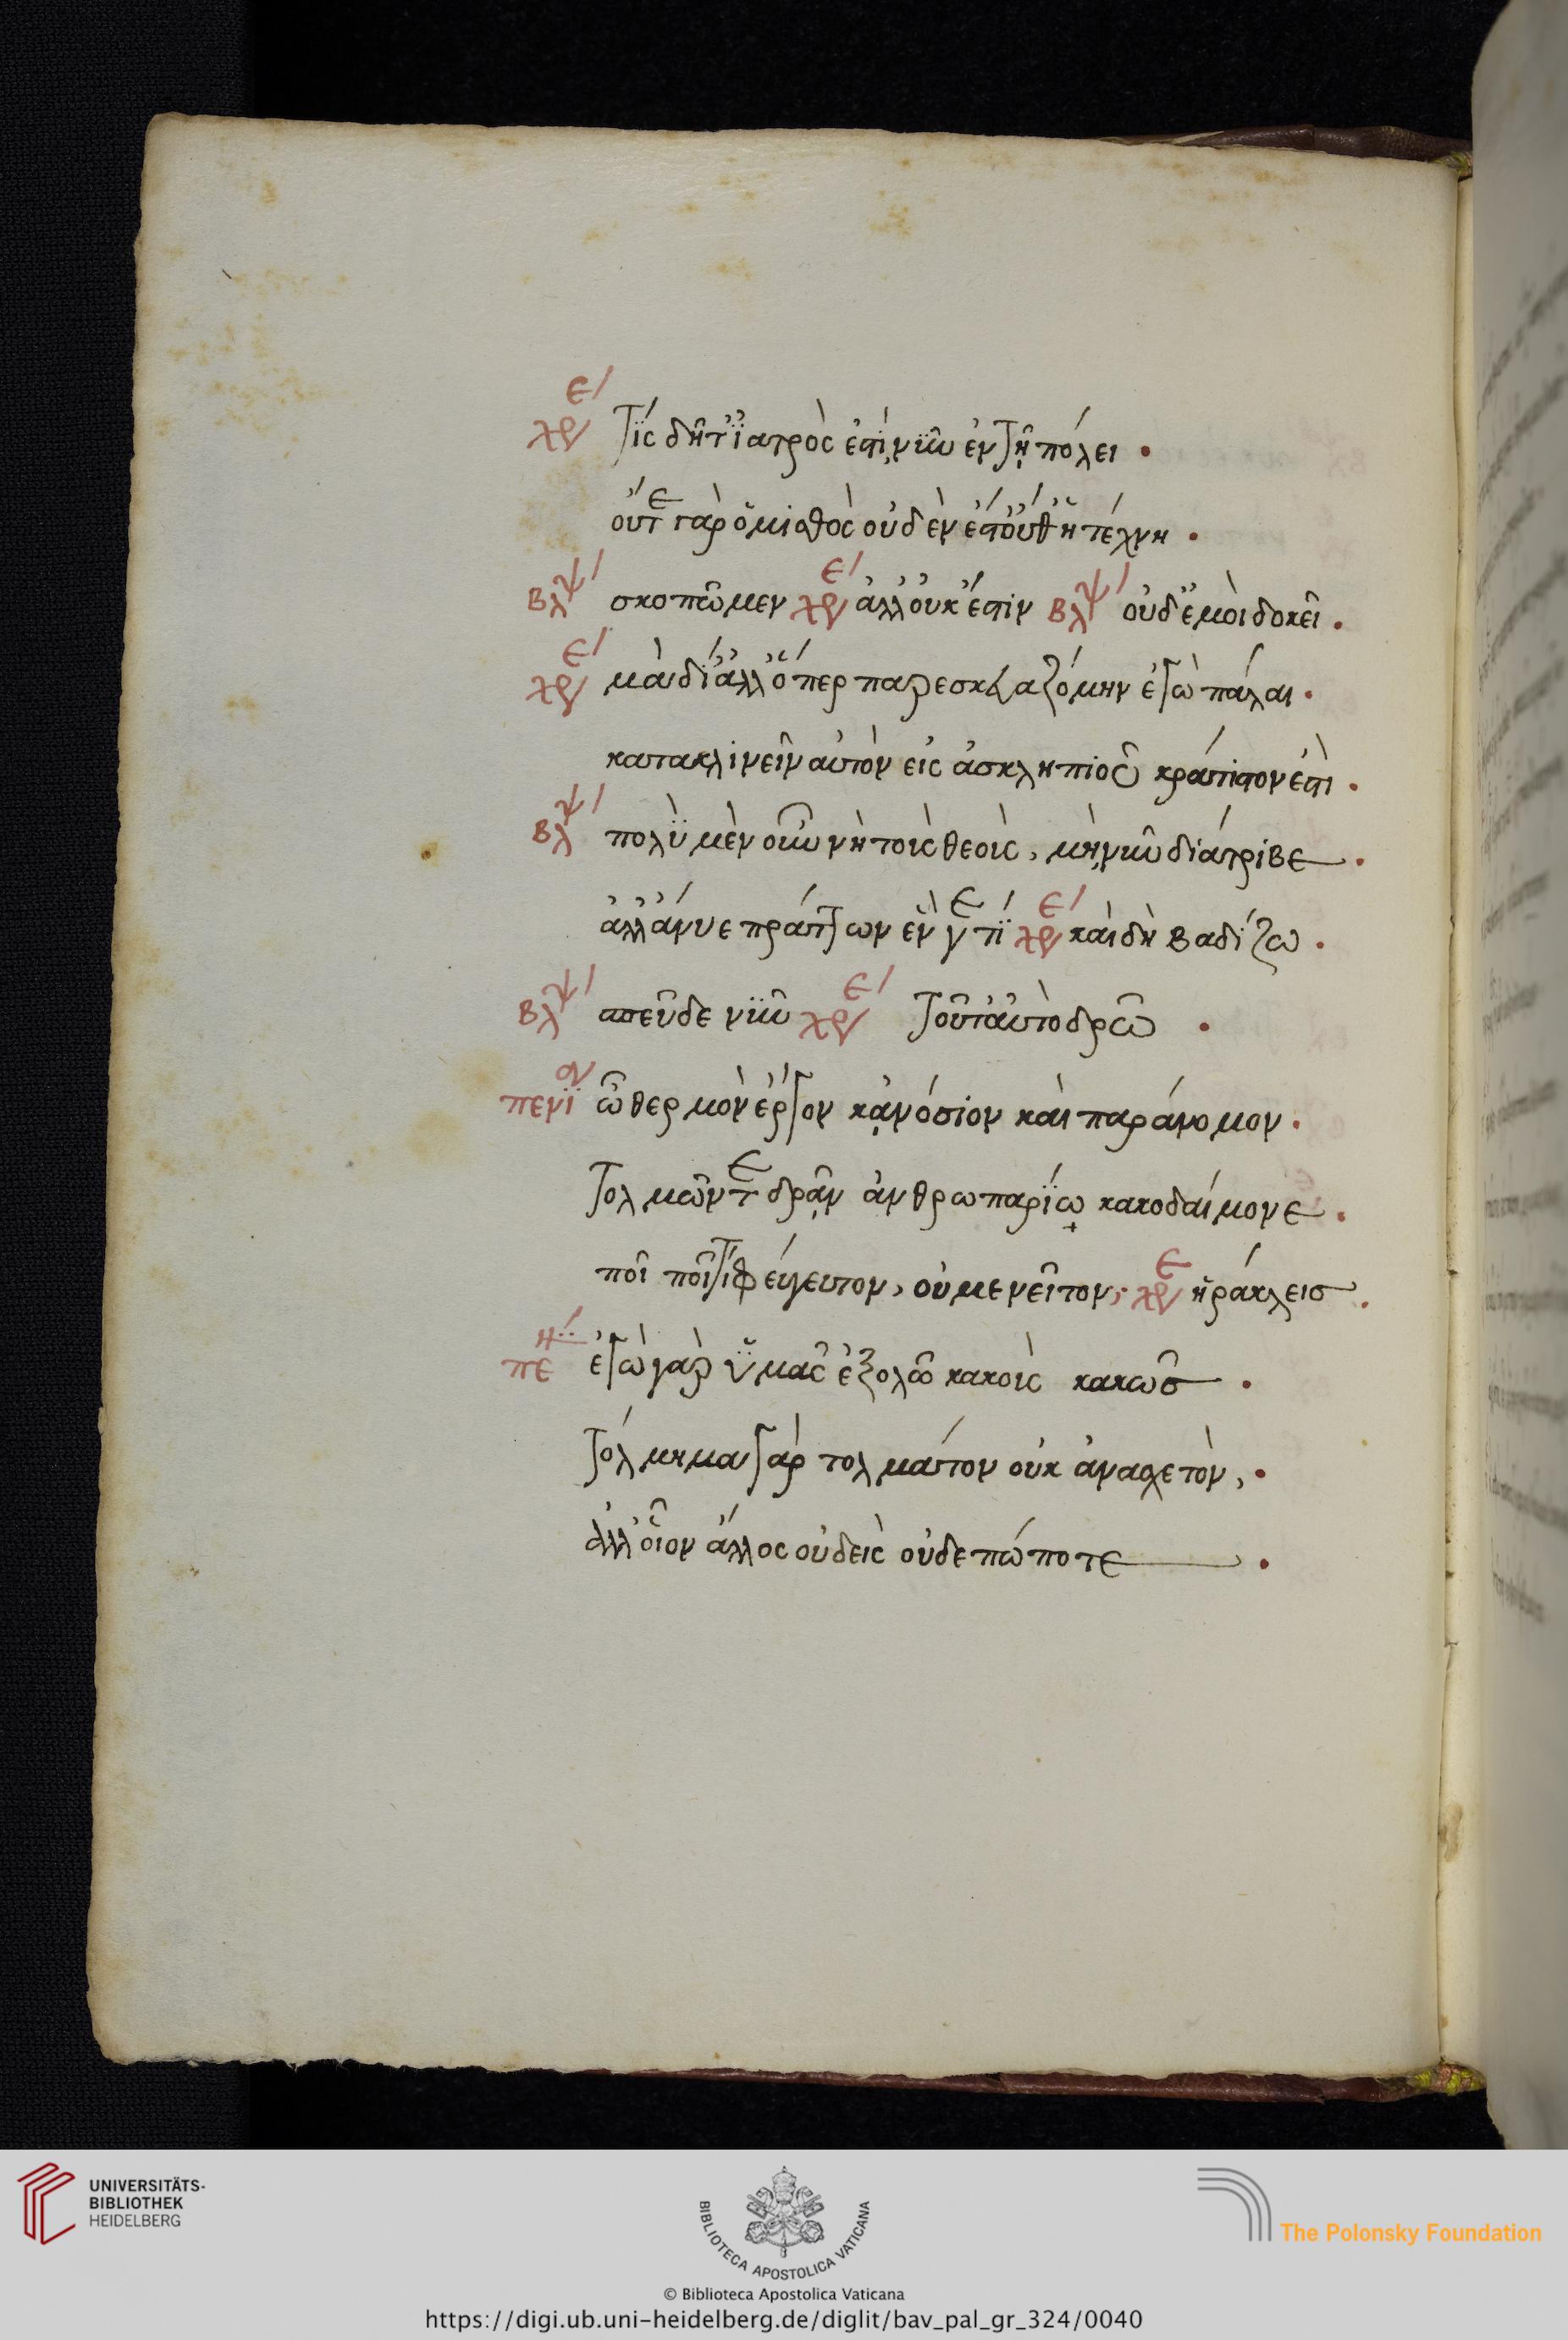 χρε τίς δῆτ' ϊατρὸς ἐστὶ νῦν ἐν τῆ πόλει.
οὔτε γὰρ ὁ μισθὸς οὐδὲν ἔστ' οὔθ' ἡ τέχνη.
βλψ σκοπῶμεν χρε ἀλλ' οὐκ ἔστιν βλψ οὐδ' ἐμοὶ δοκεῖ.
χρε μὰ δί' ἀλλ' ὅπερ πάλαι παρεσκευαζόμην ἐγὼ πάλαι.
κατακλινεῖν αὐτὸν εἰς ἀσκληπιοῦ κράτιστον ἐστὶ.
βλψ πολὺ μὲν οὖν νὴ τοὶς θεοὶς, μὴ νῦν διάτριβε.
ἀλλ' ἄνυε πράττων ἓν γέ τι χρε καὶ δὴ βαδίζω.
βλψ σπεῦδε νῦν χρε τοῦτ' αὐτὸ δρῶ.
πενϊον ὦ θερμὸν ἔργον κἀνόσιον καὶ παράνομον.
τολμῶντε δρᾶν ἀνθρωπαρίω κακοδαίμονε.
ποῖ ποῖ τί φεύγετον, οὐ μενεῖτον; χρε ἡράκλεισ.
πεν ἐγὼ γὰρ ὑμᾶς ἐξολῶ κακοὶς κακῶσ.
τόλμημα γὰρ τολμᾶτον οὐκ ἀνασχετὸν,.
ἀλλ' οἷον ἄλλος οὐδεὶς οὐδεπώποτε.
UNIVERSITÄTS-
BIBLIOTHEK
HEIDELBERG
BIBLIOTECA APOSTOLICA VATICANA
The Polonsky Foundation
© Biblioteca Apostolica Vaticana
https://digi.ub.uni-heidelberg.de/diglit/bav_pal_gr_324/0040